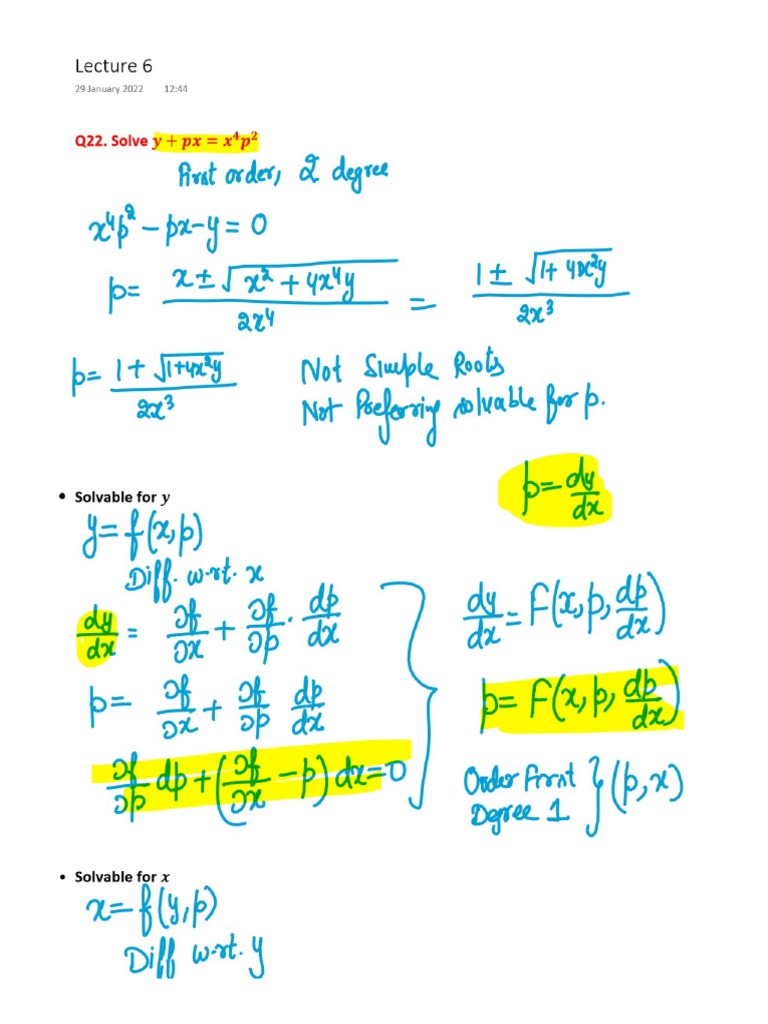 Lecture 6
29 January 2022 12:44
Q22. Solve y + px = x⁴p²
First order, 2 degree
x⁴p² − px − y = 0
p = (x ± √(x² + 4x⁴y)) / 2x⁴ = (1 ± √(1 + 4x²y)) / 2x³
p = (1 + √(1+4x²y)) / 2x³ Not Simple Roots
Not Preferring solvable for p.
p = dy/dx
• Solvable for y
y = f(x,p)
Diff. w.r.t. x
dy/dx = ∂f/∂x + ∂f/∂p · dp/dx
dy/dx = F(x, p, dp/dx)
p = ∂f/∂x + ∂f/∂p dp/dx
p = F(x, p, dp/dx)
∂f/∂p dp + (∂f/∂x − p) dx = 0
Order First } (p, x)
Degree 1
• Solvable for x
x = f(y,p)
Diff w.r.t. y